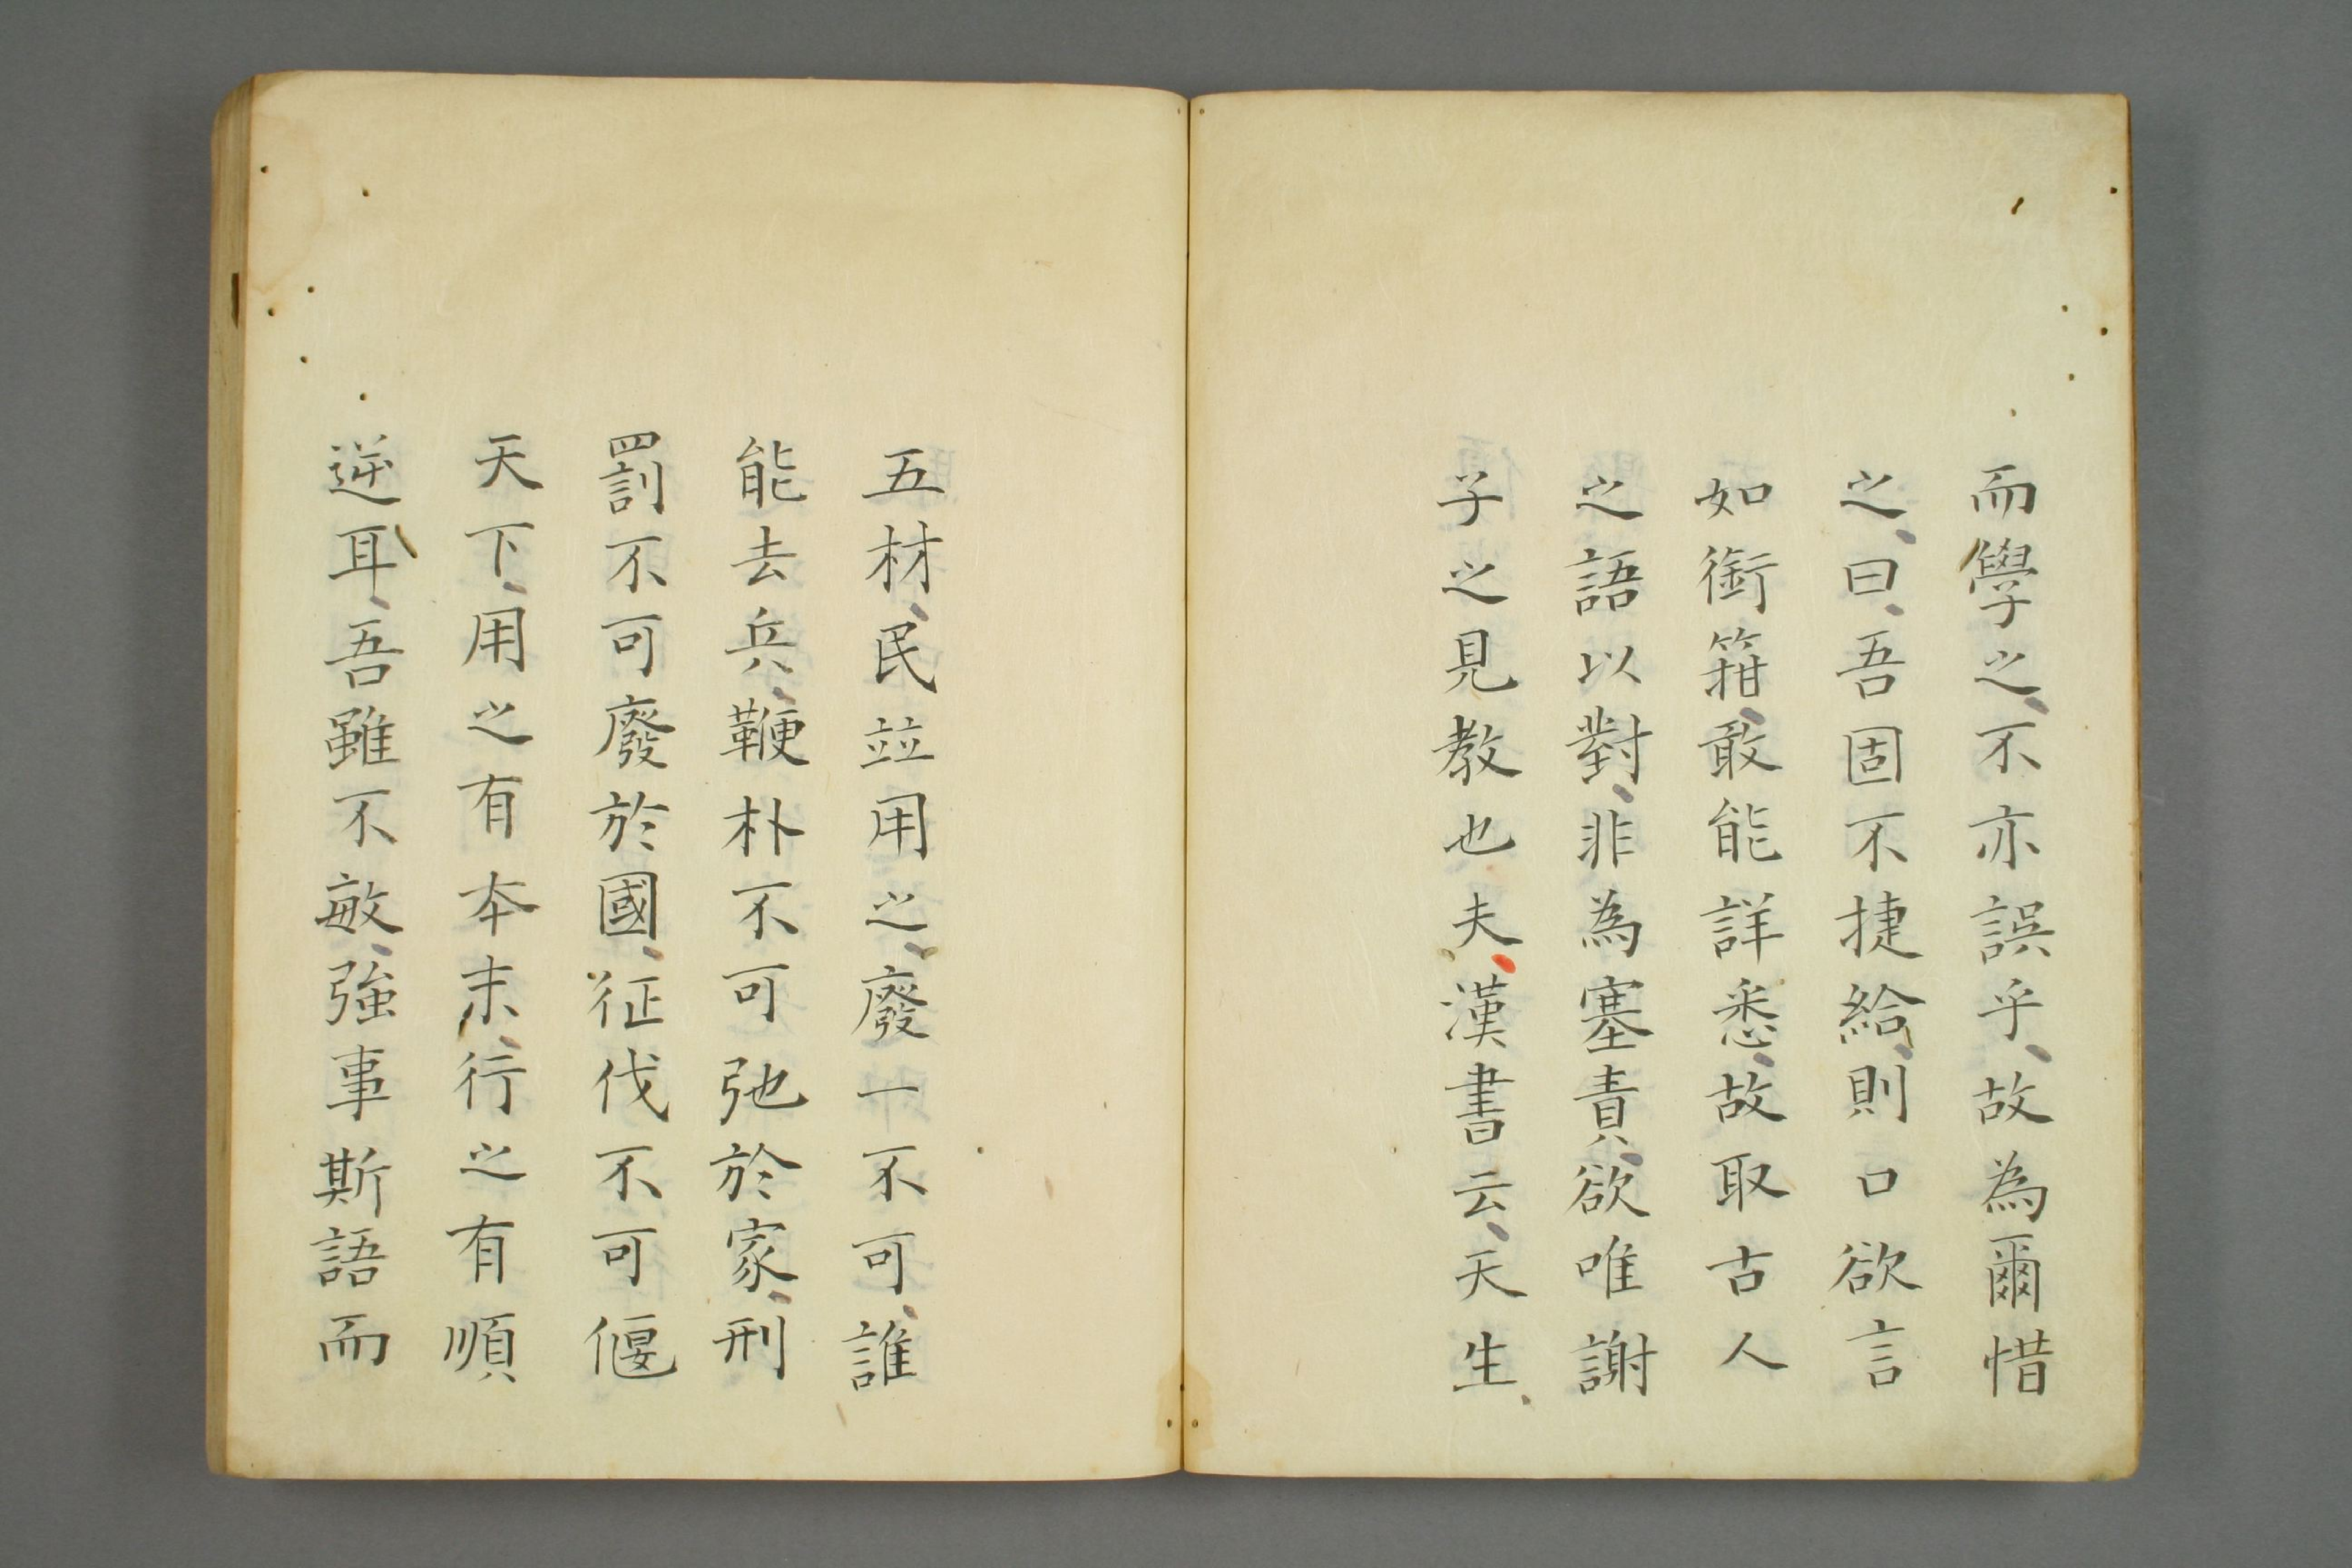 而學之、不亦誤乎、故為爾惜
之、曰、吾固不捷給、則口欲言
如銜箝、敢能詳悉、故取古人
之語以對、非為塞責、欲唯謝
子之見教也夫、漢書云、天生
五材、民竝用之、廢一不可、誰
能去兵、鞭朴不可弛於家、刑
罰不可廢於國、征伐不可偃
天下、用之有本末、行之有順
逆耳、吾雖不敏、強事斯語而